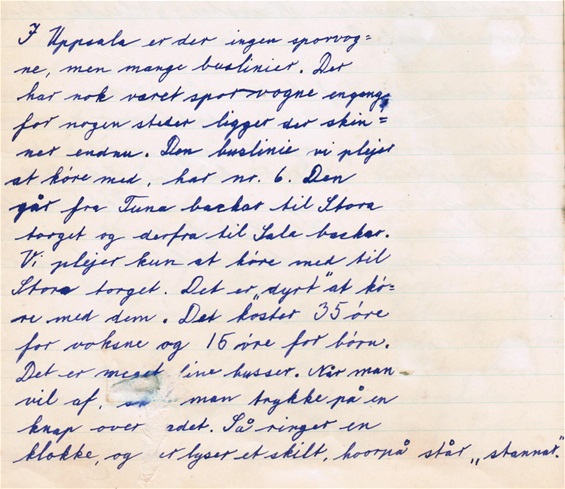 I Uppsala er der ingen sporvog=
ne, men mange buslinier. Der
har nok været sporvogne engang,
for nogen steder ligger der skin=
ner endnu. Den buslinie vi plejer
at köre med, har nr. 6. Den
går fra Tuna backar til Stora
torget og derfra til Sala backar.
Vi plejer kun at köre med til
Stora torget. Det er „dyrt” at kö=
re med dem. Det koster 35 öre
for voksne og 15 öre for börn.
Det er meget fine busser. Når man
vil af, man trykke på en
knap over adet. Så ringer en
klokke, og er lyser et skilt, hvorpå står „stannar”.